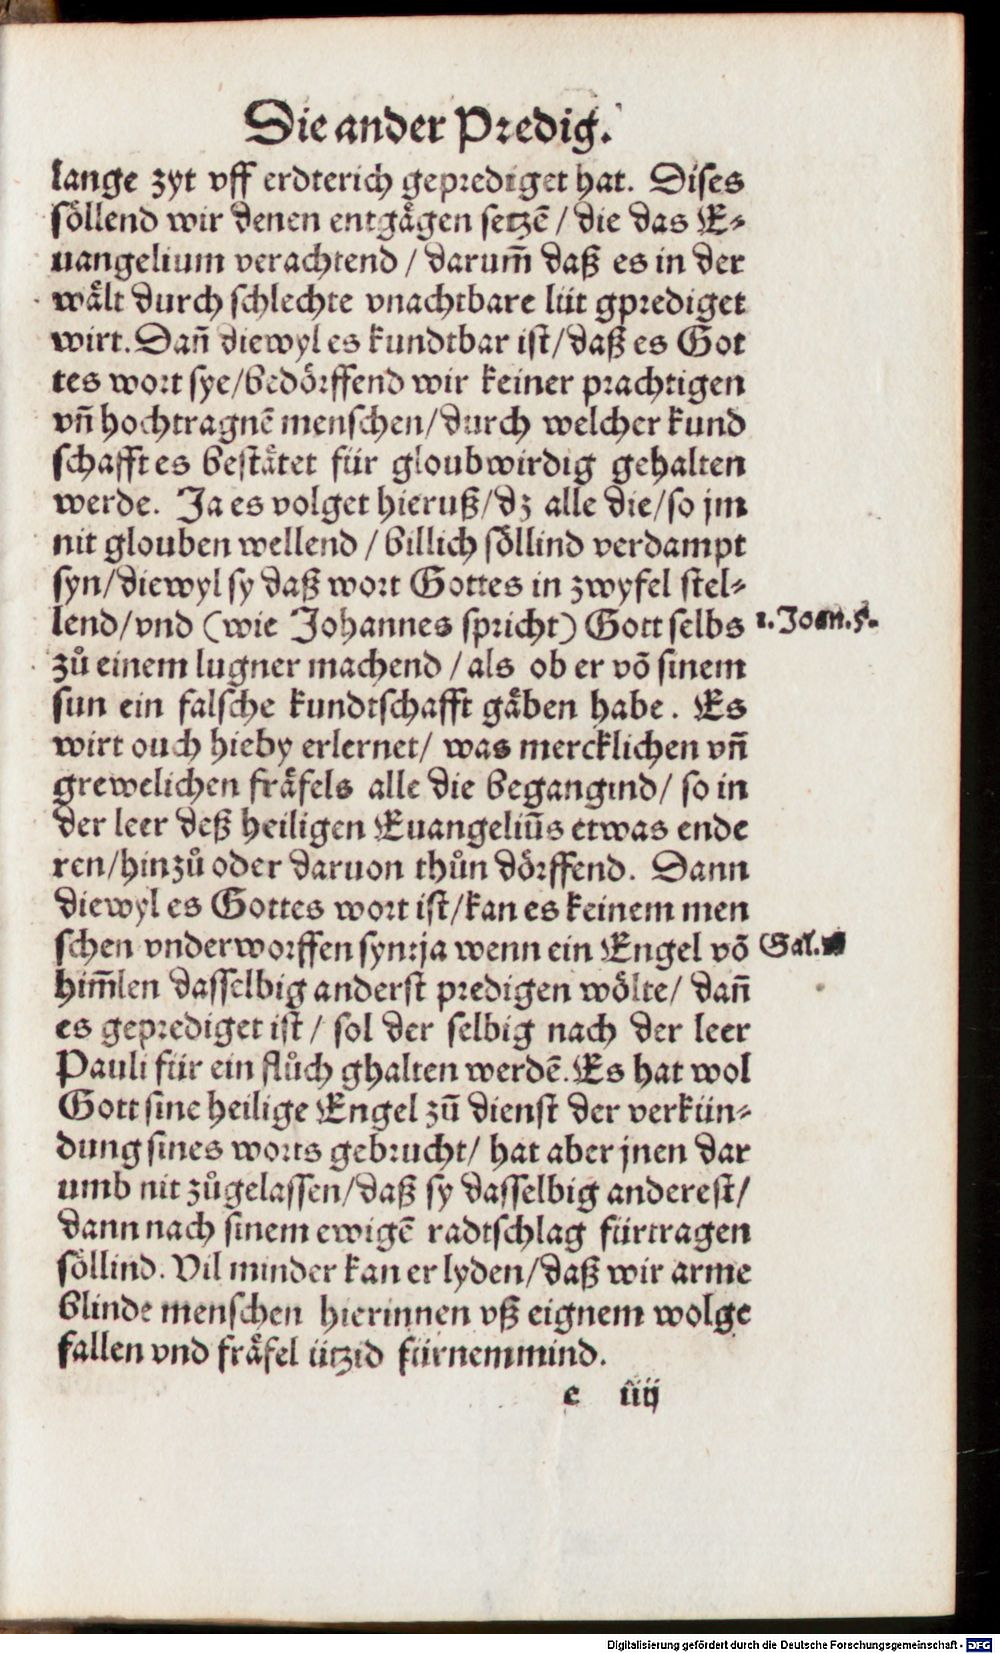 Die ander Predig.
lange zyt vff erdterich geprediget hat. Dises
söllend wir denen entgågen setzē / die das E⸗
uangelium verachtend / darum̄ daß es in der
wålt durch schlechte vnachtbare lüt gprediget
wirt. Dañ diewyl es kundtbar ist/daß es Got
tes wort sye/bedörffend wir keiner prachtigen
vñ hochtragnē menschen/durch welcher kund
schafft es beståtet für gloubwirdig gehalten
werde. Ja es volget hieruß/dz alle die/so jm
nit glouben wellend / billich söllind verdampt
syn/diewyl sy daß wort Gottes in zwyfel stel⸗
lend/vnd (wie Johannes spricht) Gott selbs
1. Joan. 5.
zů einem lugner machend / als ob er vō sinem
sun ein falsche kundtschafft gåben habe. Es
wirt ouch hieby erlernet/ was mercklichen vñ
grewelichen fråfels alle die begangind/ so in
der leer deß heiligen Euangeliūs etwas ende
ren/hinzů oder daruon thůn dörffend. Dann
diewyl es Gottes wort ist/kan es keinem men
schen vnderworffen syn: ja wenn ein Engel vō
Gal.
him̄len dasselbig anderst predigen wölte/ dañ
es geprediget ist / sol der selbig nach der leer
Pauli für ein flůch ghalten werdē. Es hat wol
Gott sine heilige Engel zū dienst der verkün⸗
dung sines worts gebrucht/ hat aber jnen dar
umb nit zůgelassen/daß sy dasselbig anderest/
dann nach sinem ewigē radtschlag fürtragen
söllind. Vil minder kan er lyden/daß wir arme
blinde menschen hierinnen vß eignem wolge
fallen vnd fråfel ützid fürnemmind.
e iiij
Digitalisierung gefördert durch die Deutsche Forschungsgemeinschaft - DFG